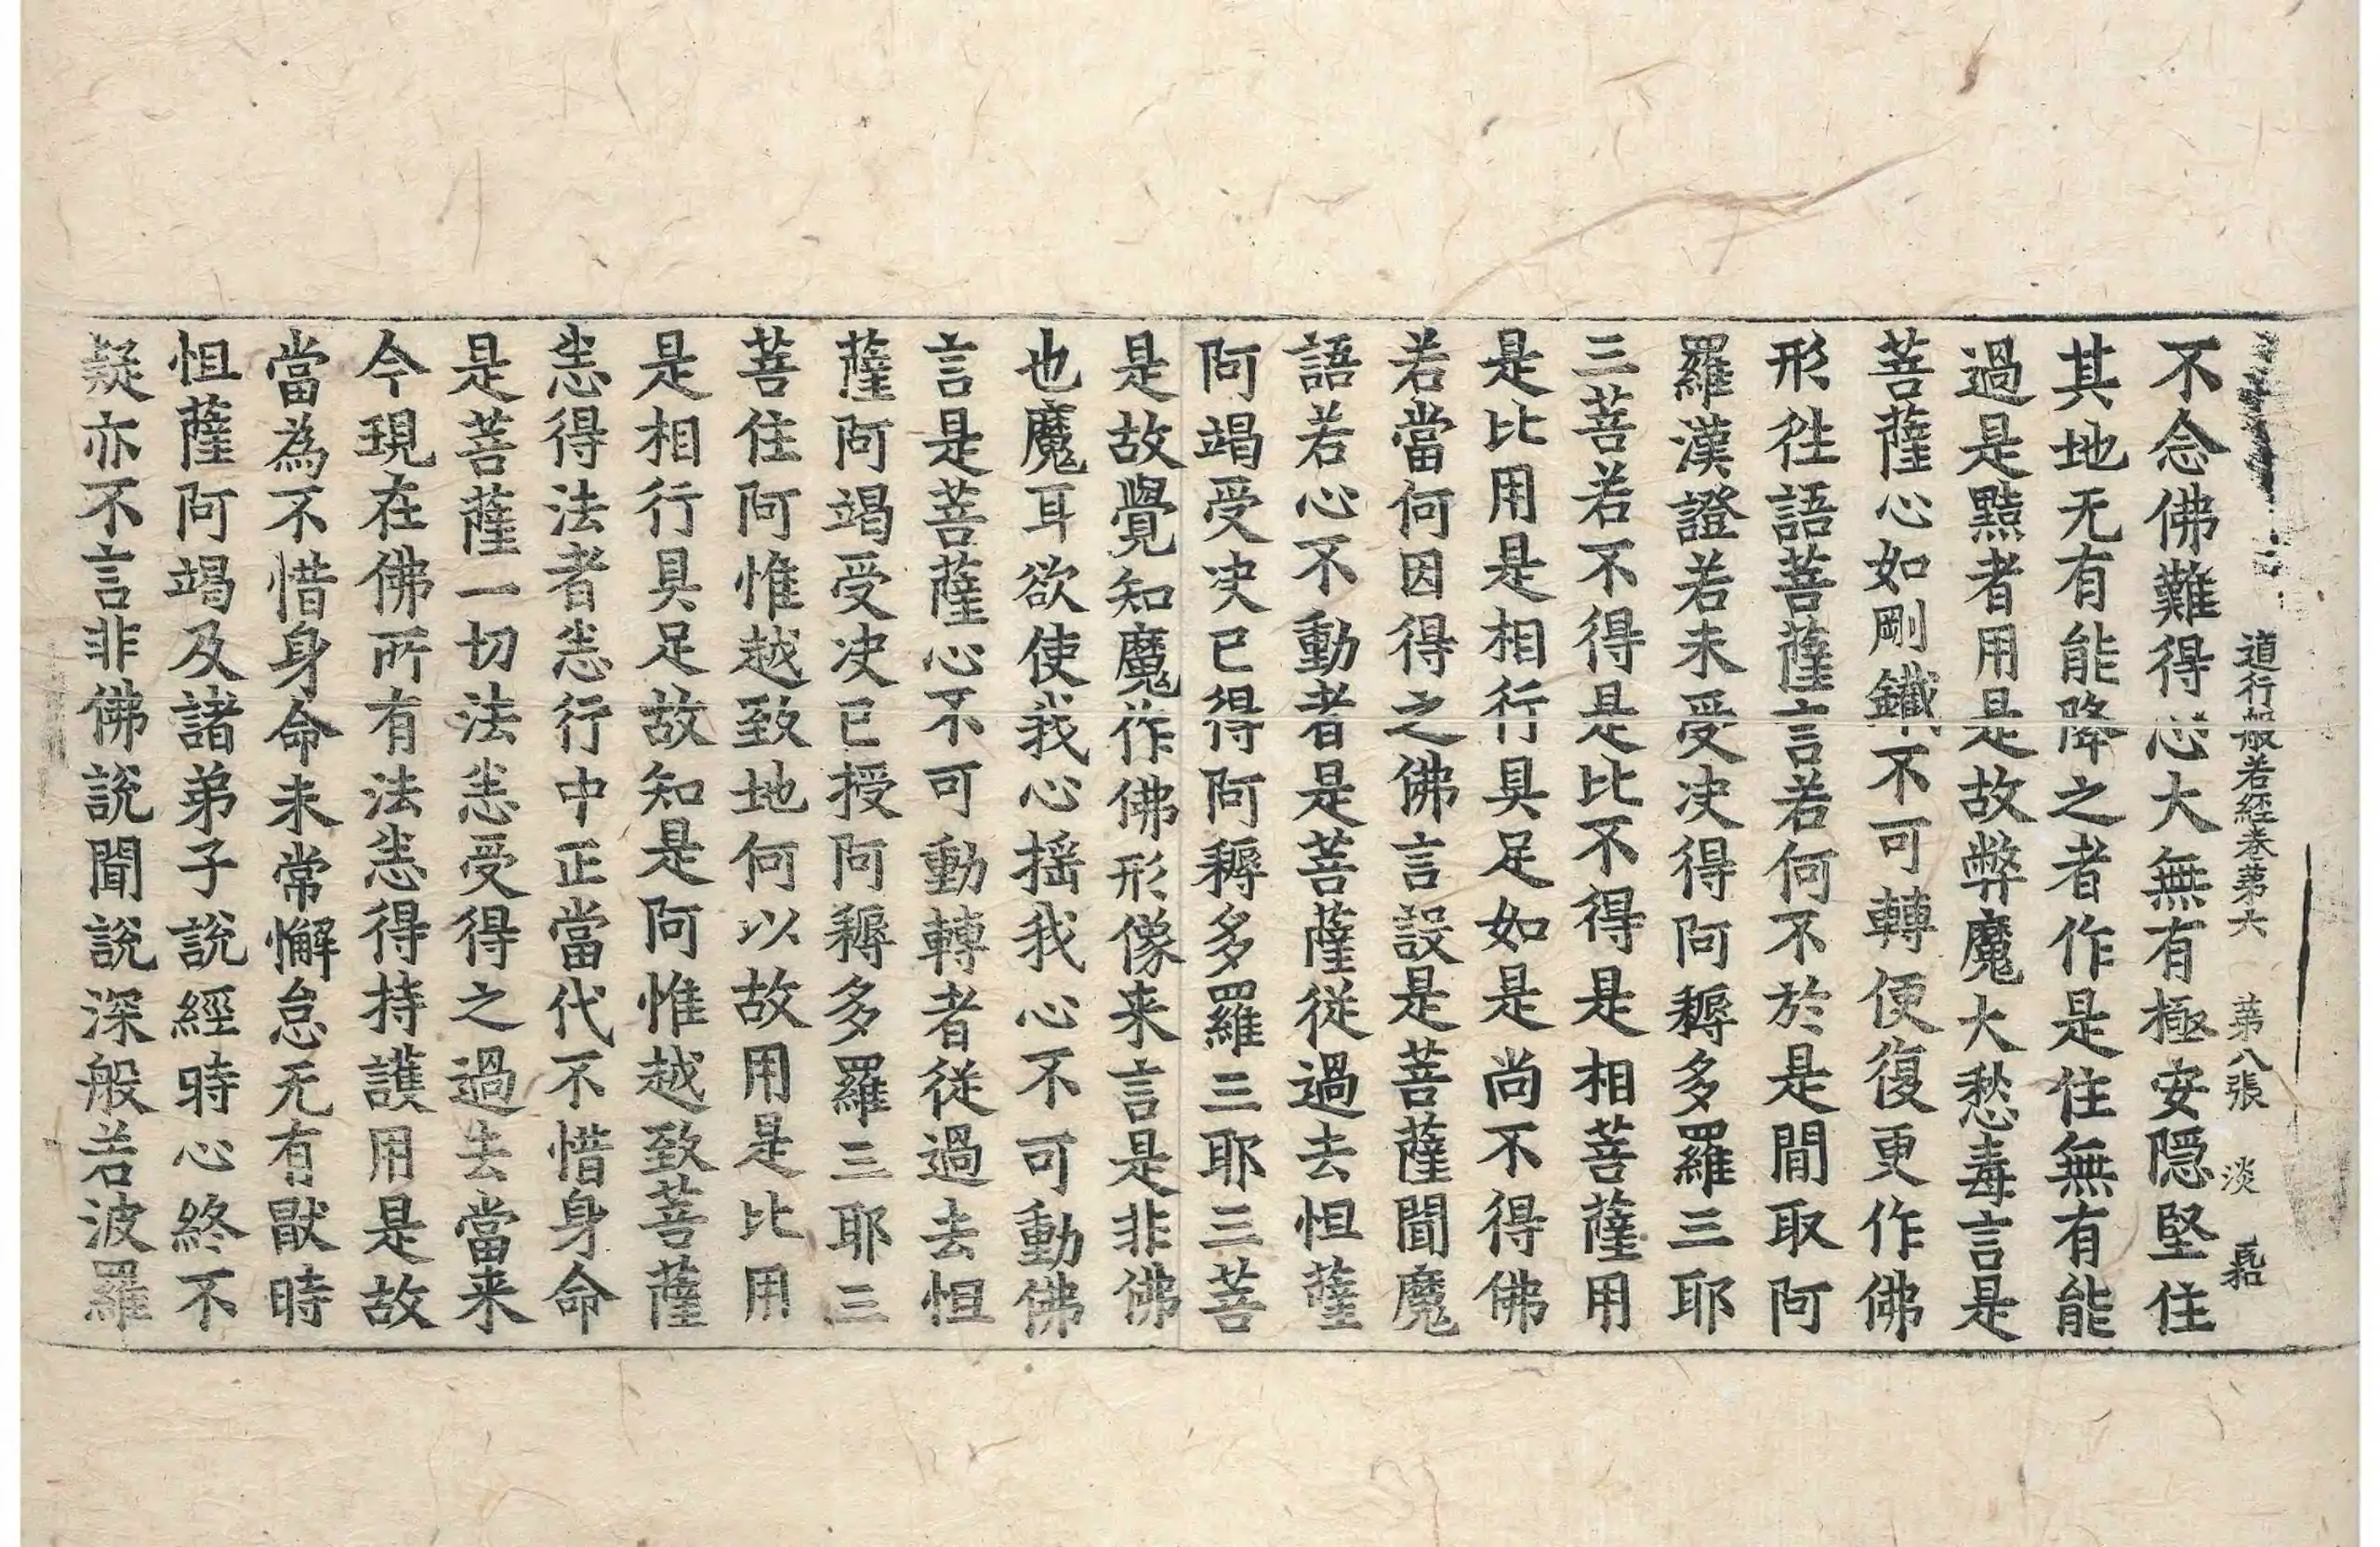 道行般若經卷第六 第八張 淡
不念佛難得心大無有極安隠堅住
其地无有能降之者作是住無有能
過是黠者用是故弊魔大愁毒言是
菩薩心如剛鐵不可轉便復更作佛
形徃語菩薩言若何不於是間取阿
羅漢證若未受决得阿耨多羅三耶
三菩若不得是比不得是相菩薩用
是比用是相行具足如是尚不得佛
若當何因得之佛言設是菩薩聞魔
語若心不動者是菩薩從過去怛薩
阿竭受决已得阿耨多羅三耶三菩
是故覺知魔作佛形像来言是非佛
也魔耳欲使我心揺我心不可動佛
言是菩薩心不可動轉者從過去怛
薩阿竭受决已授阿耨多羅三耶三
菩住阿惟越致地何以故用是比用
是相行具足故知是阿惟越致菩薩
恙得法者恙行中正當代不惜身命
是菩薩一切法恙受得之過去當来
今現在佛所有法恙得持護用是故
當為不惜身命未常懈怠无有猒時
怛薩阿竭及諸弟子說經時心終不
疑亦不言非佛說聞說深般若波羅